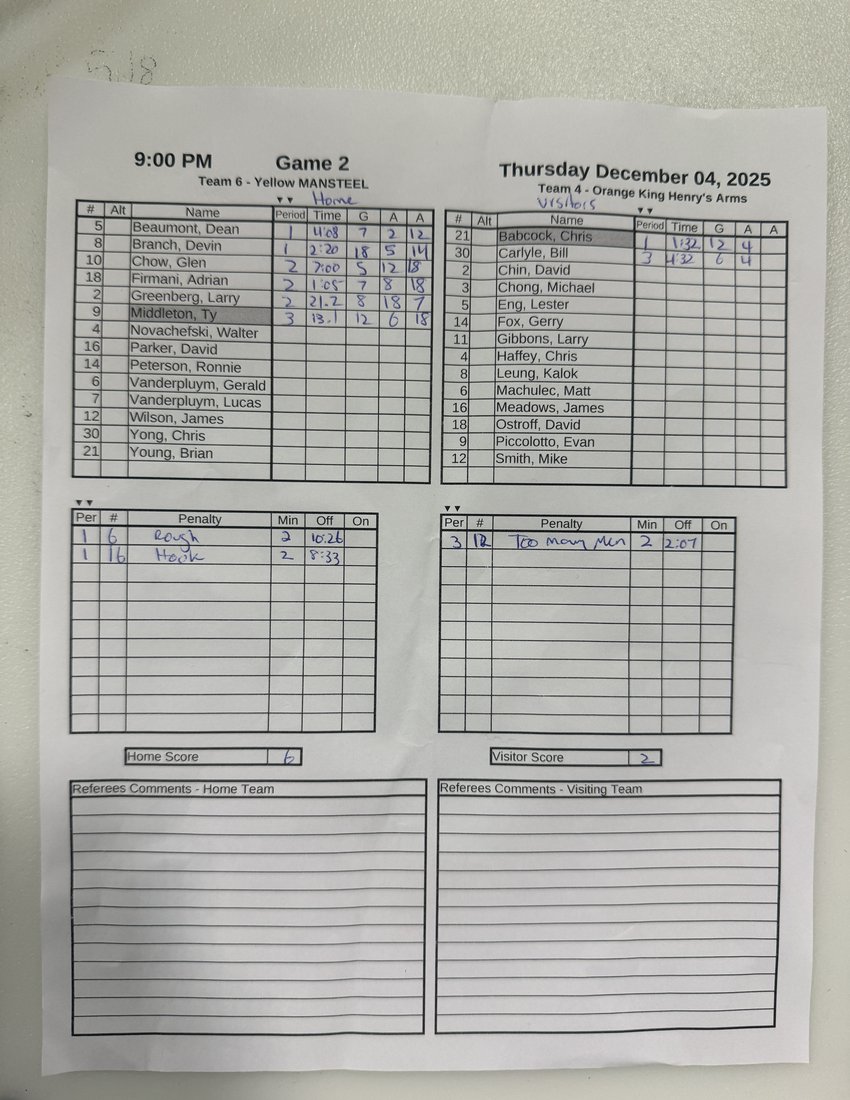 518
9:00 PM Game 2
Team 6 - Yellow MANSTEEL
Home
# Alt Name Period Time G A A
5 Beaumont, Dean 1 11:08 7 2 12
8 Branch, Devin 1 2:20 18 5 14
10 Chow, Glen 2 7:00 5 12 18
18 Firmani, Adrian 2 1:05 7 8 18
2 Greenberg, Larry 2 21.2 8 18 7
9 Middleton, Ty 3 13.1 12 6 18
4 Novachefski, Walter
16 Parker, David
14 Peterson, Ronnie
6 Vanderpluym, Gerald
7 Vanderpluym, Lucas
12 Wilson, James
30 Yong, Chris
21 Young, Brian
Thursday December 04, 2025
Team 4 - Orange King Henry's Arms
Visitors
# Alt Name Period Time G A A
21 Babcock, Chris 1 1:32 12 4
30 Carlyle, Bill 3 4:32 6 4
2 Chin, David
3 Chong, Michael
5 Eng, Lester
14 Fox, Gerry
11 Gibbons, Larry
4 Haffey, Chris
8 Leung, Kalok
6 Machulec, Matt
16 Meadows, James
18 Ostroff, David
9 Piccolotto, Evan
12 Smith, Mike
Per # Penalty Min Off On
1 6 Rough 2 10:26
1 16 Hook 2 8:33
Per # Penalty Min Off On
3 12 Too Many Men 2 2:07
Home Score 6
Visitor Score 2
Referees Comments - Home Team
Referees Comments - Visiting Team